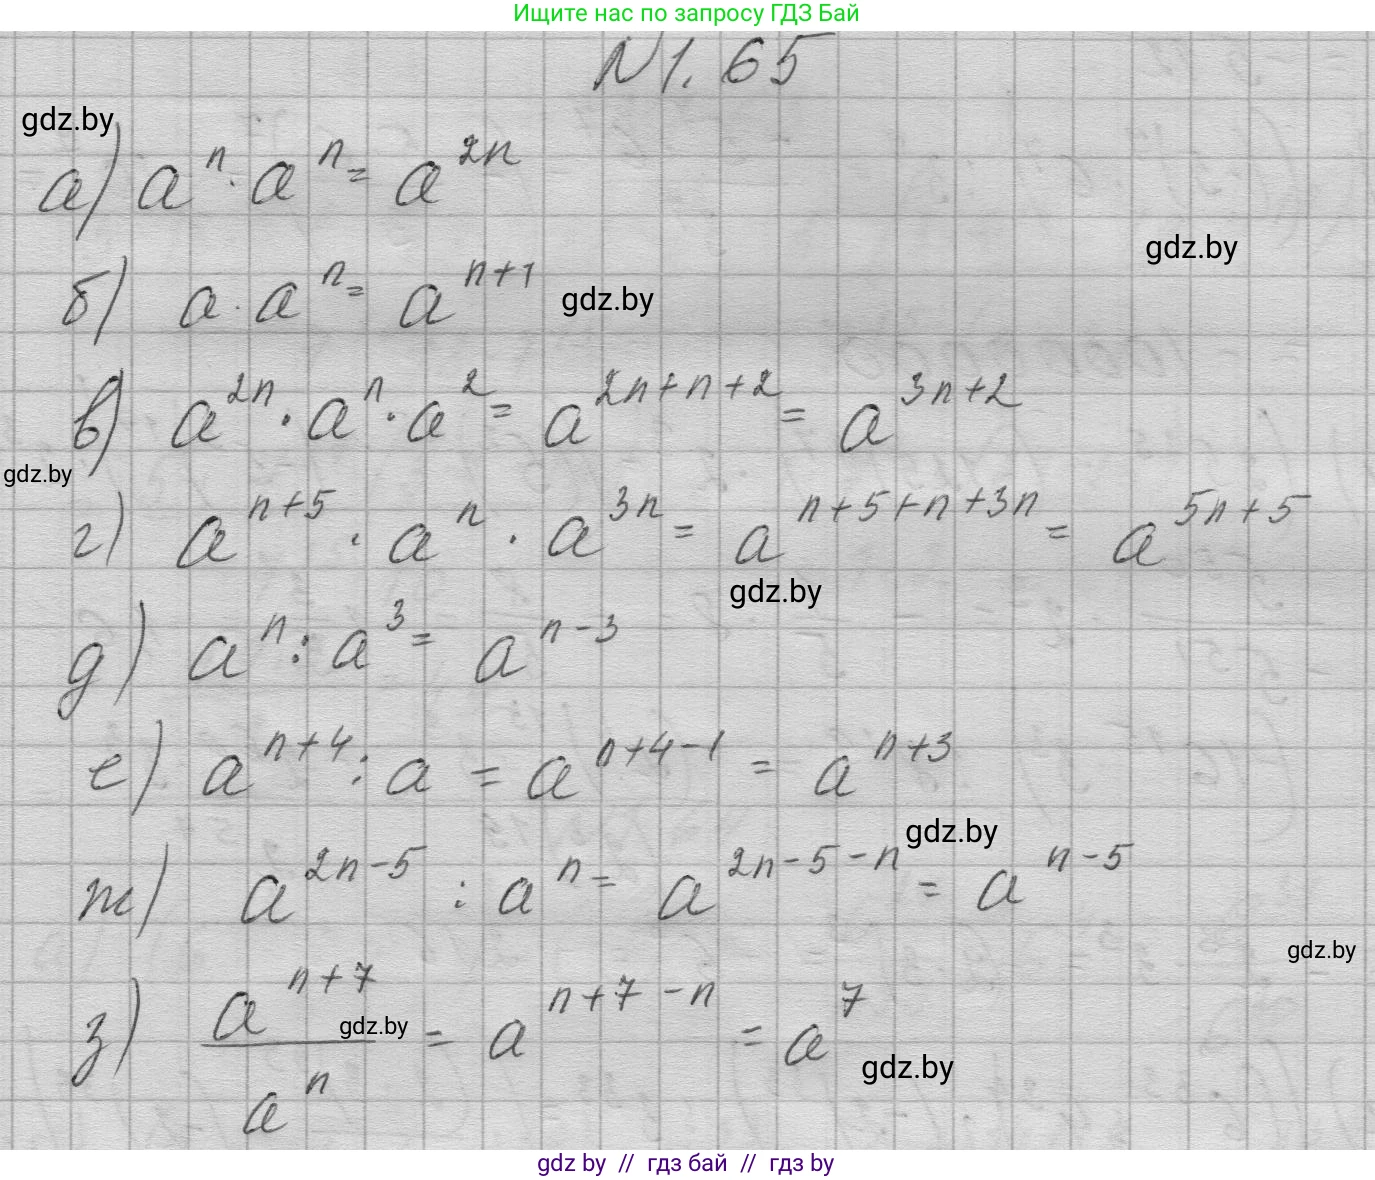 Ищите нас по запросу ГДЗ Бай
N 1.65
gdz.by
а) aⁿ · aⁿ = a²ⁿ
gdz.by
б) a · aⁿ = aⁿ⁺¹ gdz.by
в) a²ⁿ · aⁿ · a² = a²ⁿ⁺ⁿ⁺² = a³ⁿ⁺²
gdz.by
г) aⁿ⁺⁵ · aⁿ · a³ⁿ = aⁿ⁺⁵⁺ⁿ⁺³ⁿ = a⁵ⁿ⁺⁵
gdz.by
д) aⁿ : a³ = aⁿ⁻³
е) aⁿ⁺⁴ : a = aⁿ⁺⁴⁻¹ = aⁿ⁺³
gdz.by
ж) a²ⁿ⁻⁵ : aⁿ = a²ⁿ⁻⁵⁻ⁿ = aⁿ⁻⁵
gdz.by
з) aⁿ⁺⁷ / aⁿ = aⁿ⁺⁷⁻ⁿ = a⁷
gdz.by
gdz.by
gdz by // гдз бай // гдз by